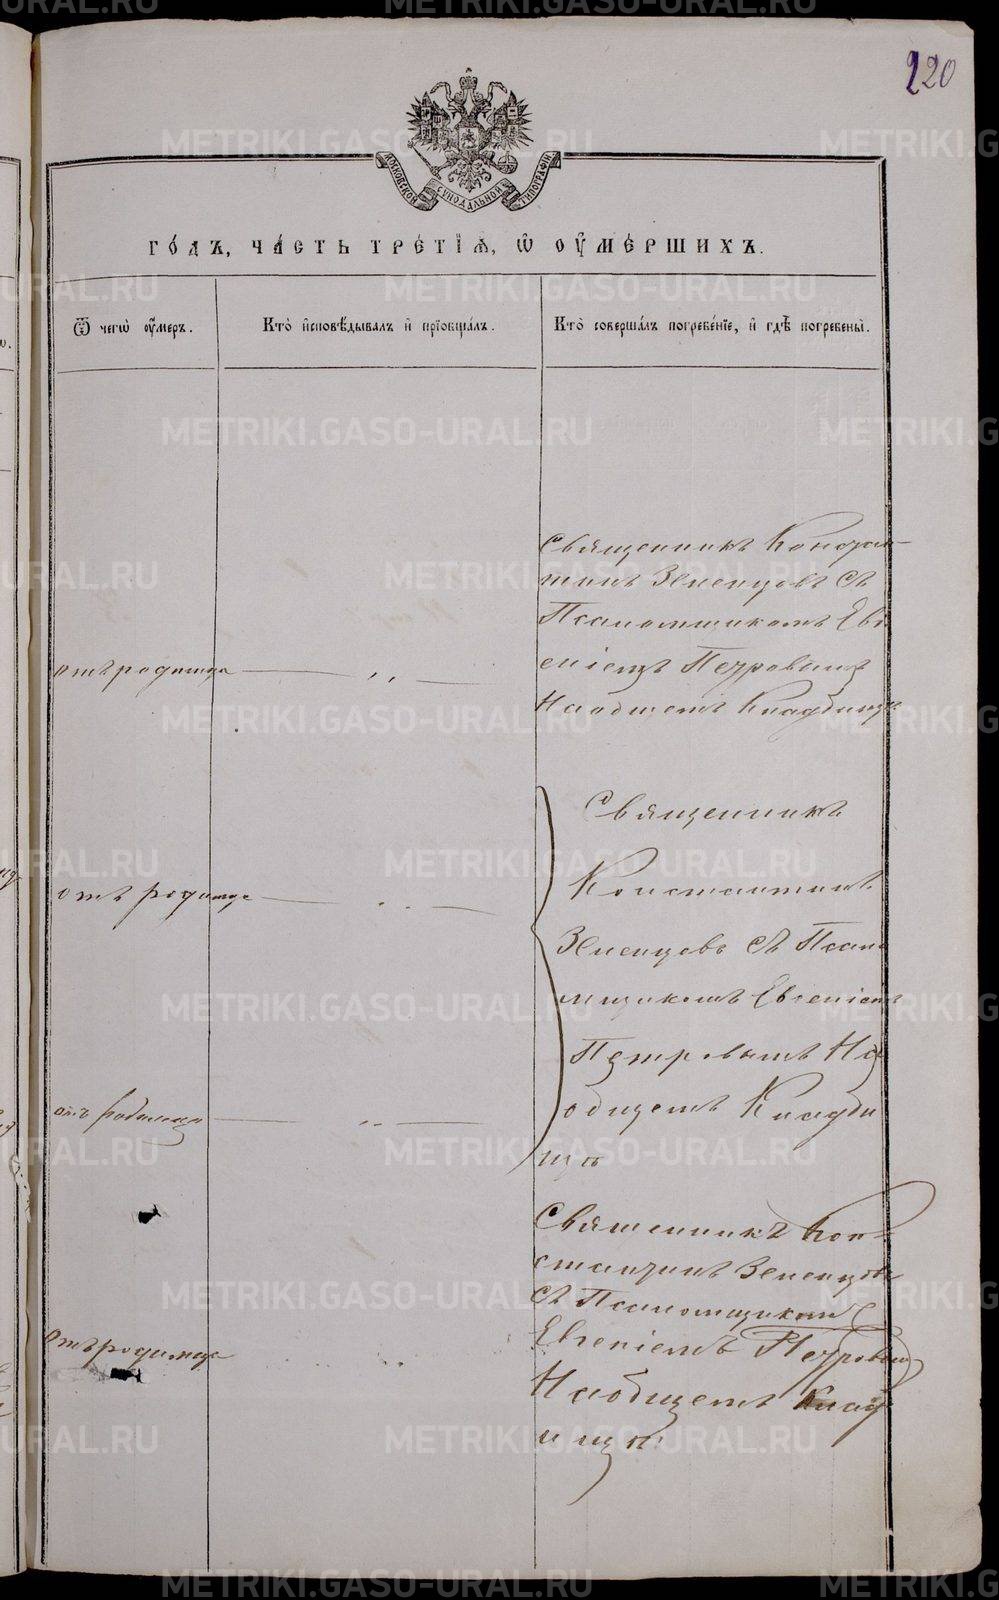 220
МОСКОВСКОЙ СУНОДАЛЬНОЙ ТИПОГРАФІИ
ГО́ДЪ, ЧА́СТЬ ТРЕ́ТІѦ, Ѡ҆ ОУ҆МЕ́РШИХЪ.
Ѿ чегѡ̀ оу҆́меръ.
Кто̀ и҆сповѣ́дывалъ и҆ прїѡбща́лъ.
Кто̀ соверша́лъ погребе́нїе, и҆ гдѣ̀ погребены̀.
Священникъ Констан-
тинъ Зеленцовъ съ
Псаломщикомъ Евг
еніемъ Петровымъ
На общемъ Кладбищѣ
отъ родимца — „ —
Священникъ
Константинъ
Зеленцовъ съ Псало
мщикомъ Евгеніемъ
Петровымъ На
общемъ Кладби
щѣ
отъ родимца — „ —
отъ родимца — „ —
Священникъ Кон
стантинъ Зеленцовъ
съ Псаломщикомъ
Евгеніемъ Петровым
На общемъ Кладб
ищѣ
отъ родимца
METRIKI.GASO-URAL.RU